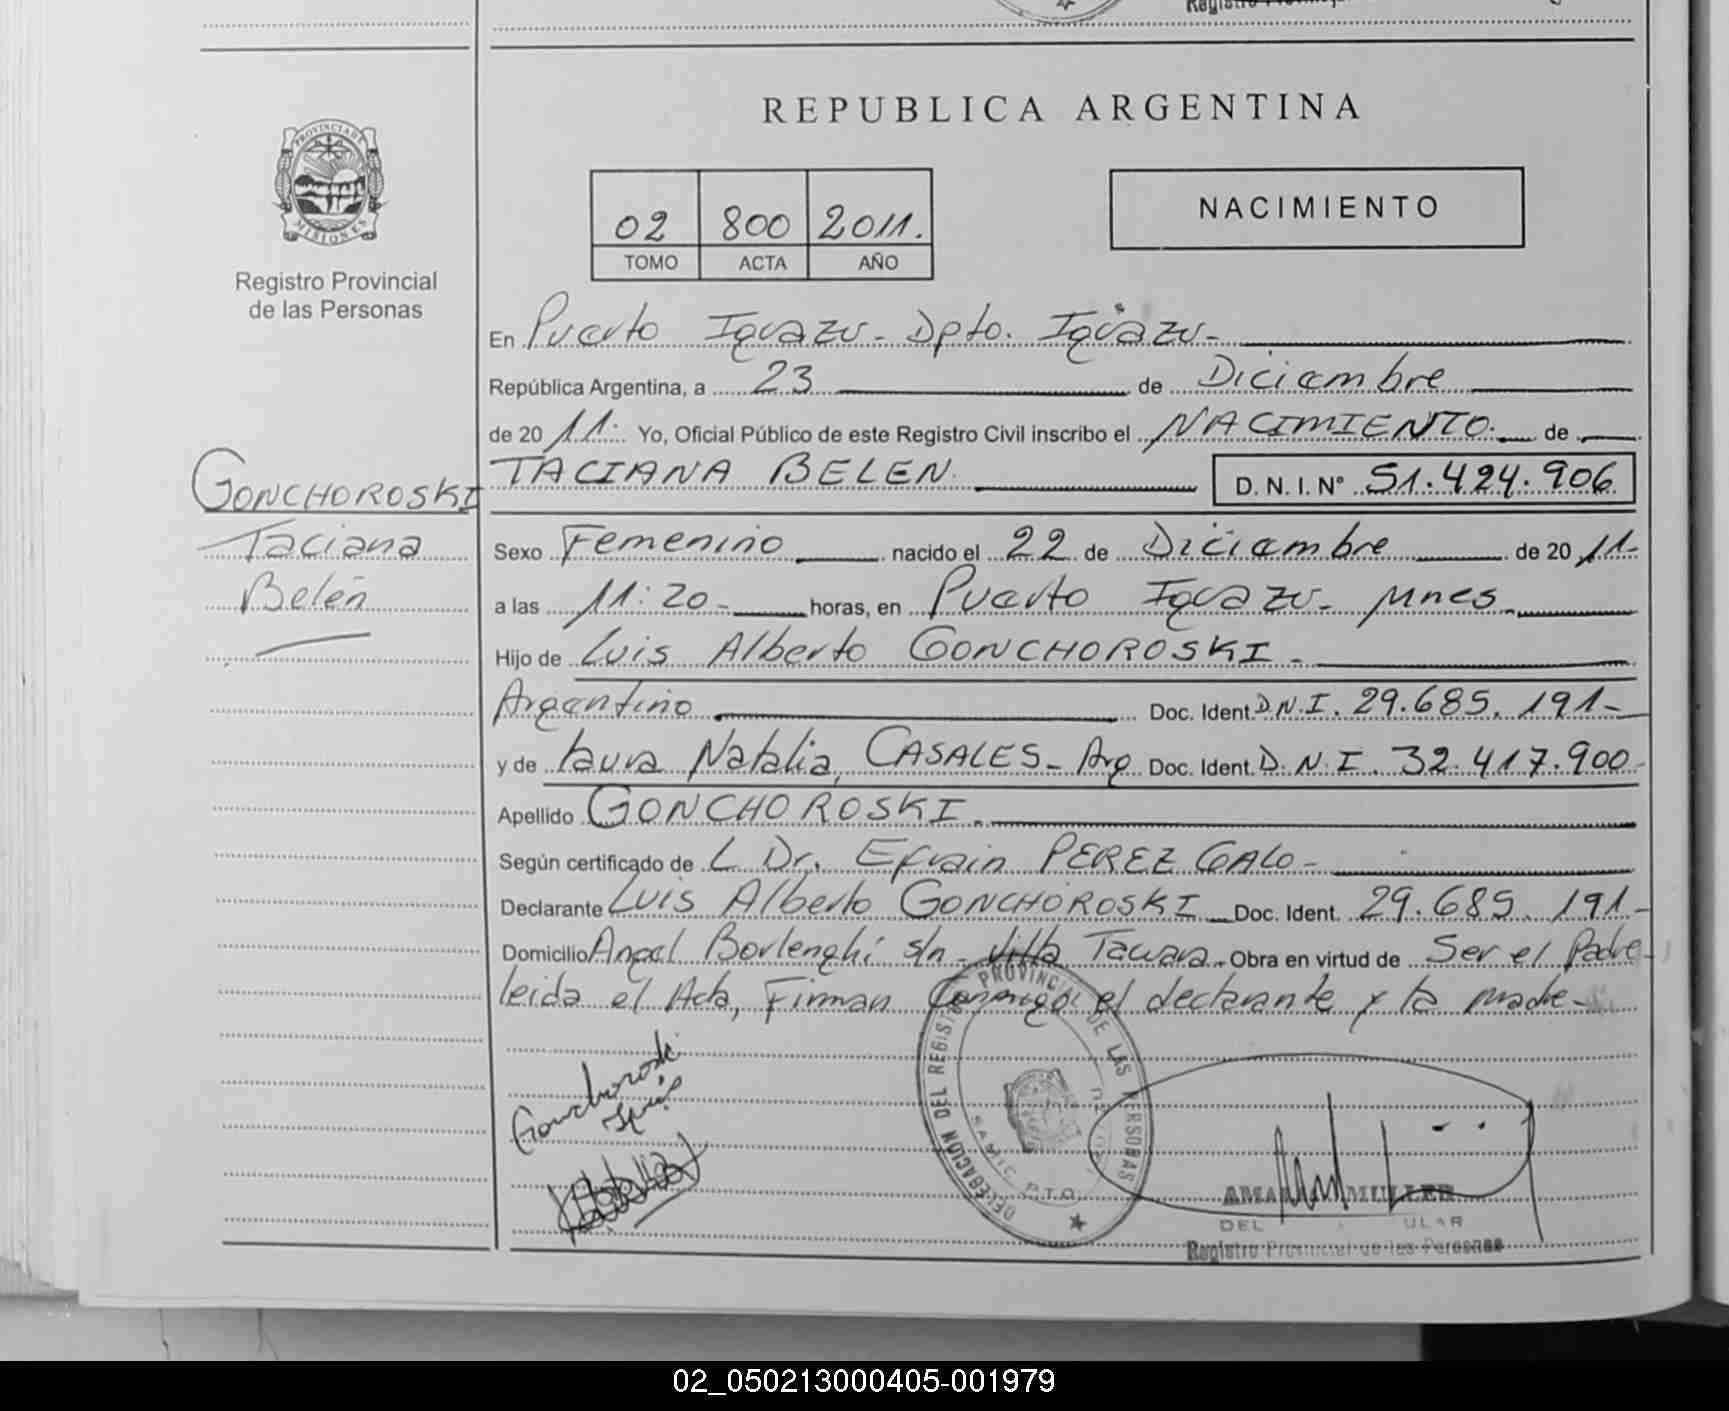 REPUBLICA ARGENTINA
PROVINCIA DE MISIONES
Registro Provincial
de las Personas
02 800 2011.
TOMO ACTA AÑO
NACIMIENTO
En Puerto Iguazu - Dpto. Iguazu -
República Argentina, a 23 de Diciembre
de 20 11. Yo, Oficial Público de este Registro Civil inscribo el NACIMIENTO. de
TACIANA BELEN. D. N. I. Nº 51.424.906
GONCHOROSKI
Taciana
Belén
Sexo Femenino nacido el 22 de Diciembre de 20 11-
a las 11:20 - horas, en Puerto Iguazu - Mnes.
Hijo de Luis Alberto GONCHOROSKI -
Argentino Doc. Ident. D.N.I. 29.685.191-
y de Laura Natalia CASALES - Arg. Doc. Ident. D.N.I. 32.417.900-
Apellido GONCHOROSKI.
Según certificado de L Dr. Efrain PEREZ GALO -
Declarante Luis Alberto GONCHOROSKI Doc. Ident. 29.685.191-
Domicilio Angel Borlenghi s/n - Villa Tacuara - Obra en virtud de Ser el Padre -
leida el Acta, Firman Conmigo el declarante y la madre -
Gonchoroski
Luis
Natalia
DELEGACION DEL REGISTRO PROVINCIAL DE LAS PERSONAS
SAMIC PTO.
MULLER
Registro Provincial de las Personas
02_050213000405-001979